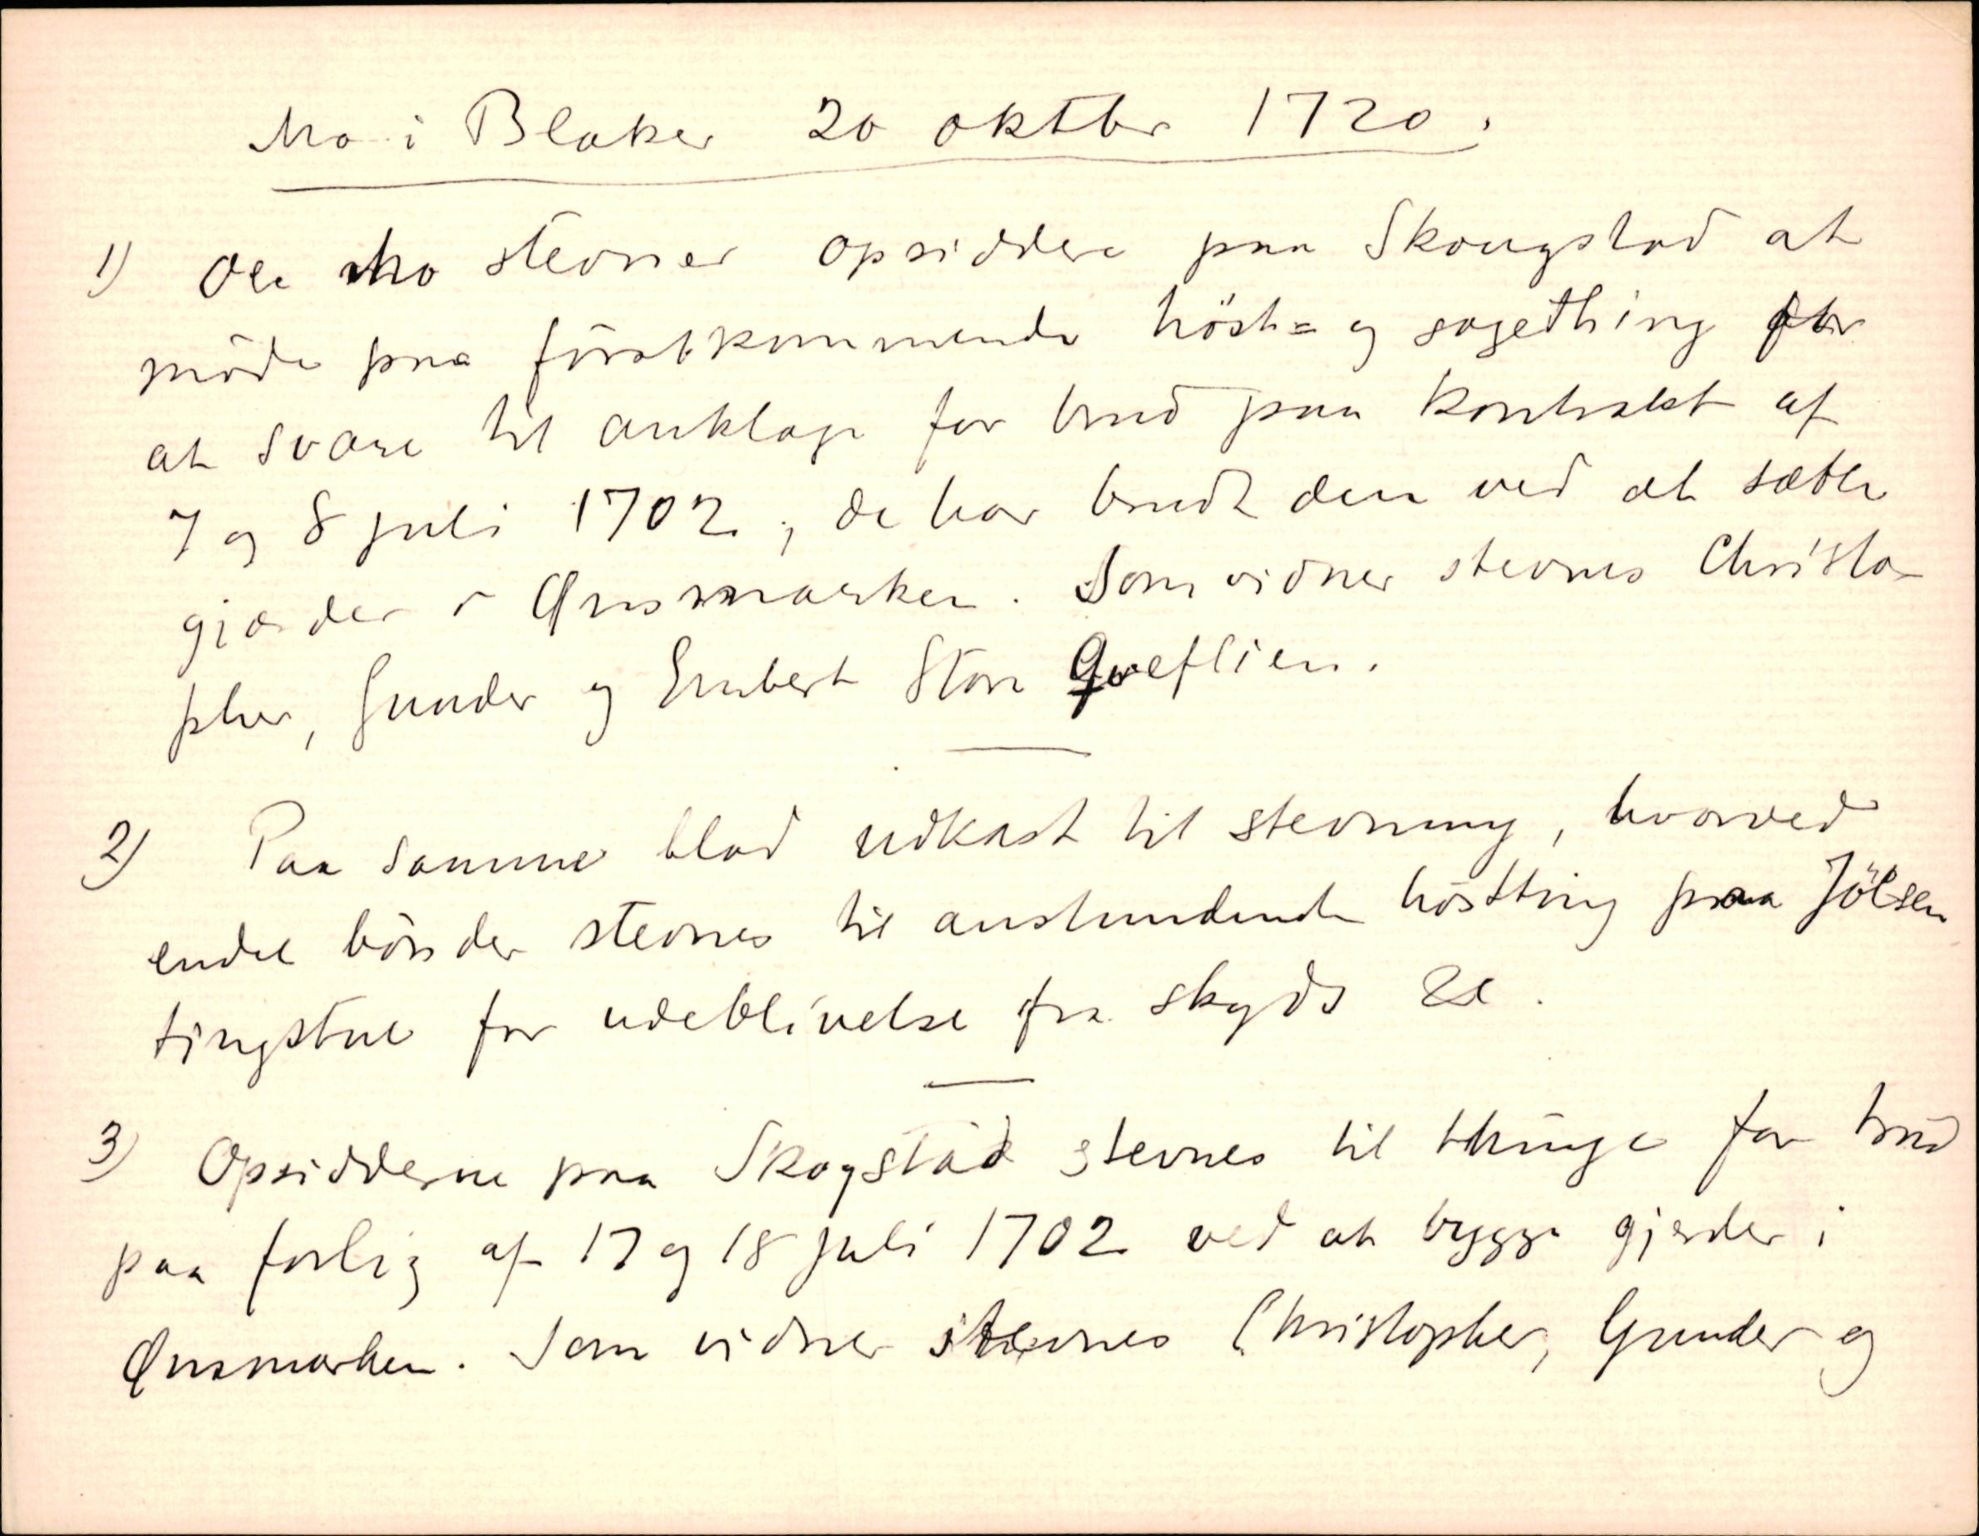 Mo i Blaker 20 oktbr 1720.
1) Ole Mo stevner opsiddere paa Skougstad at
möde paa förstkommende höst= og sagething for
at svare til anklage for brud paa kontrakt af
7 og 8 juli 1702; de har brudt den ved at sætte
gjærder i Ønsmarken. Som vidner stevnes Christo-
pher, Gunder og Embert Store Græflien.
2) Paa samme blad udkast til stevning, hvorved
endel bönder stevnes til anstundende höstting paa Jölsen
tingstue for udeblivelse fra skyds &c.
3) Opsidderne paa Skogstad stevnes til thinge for brud
paa forlig af 17 og 18 juli 1702 ved at bygge gjerder i
Ønsmarken. Som vidner stevnes Christopher, Gunder og